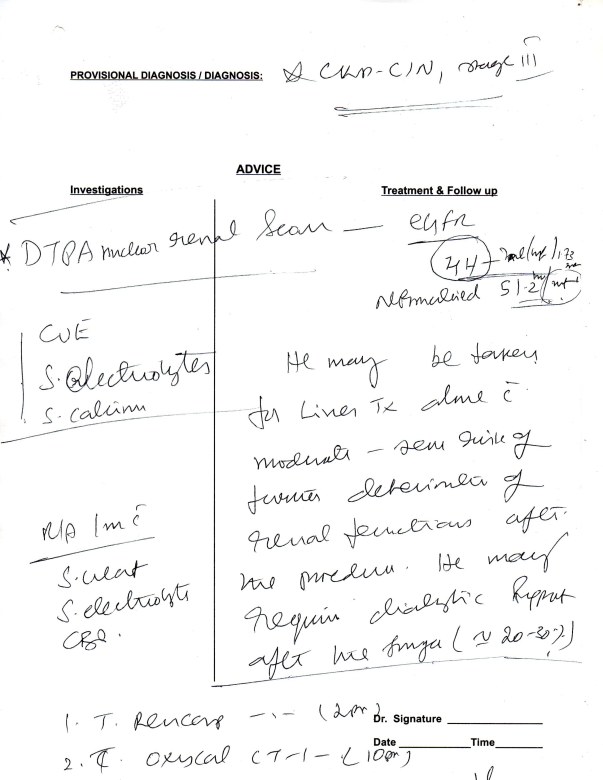 PROVISIONAL DIAGNOSIS / DIAGNOSIS: CKD-CIN, stage III
ADVICE
Investigations
Treatment & Follow up
* DTPA nuclear renal Scan — eGFR
44 ml/mt/1.73
Normalised 51.2 ml/mt
CUE
S. electrolytes
S. calcium
He may be taken
for Liver Tx alone c̄
moderate - risk of
further deterioration of
renal functions after
the procedure. He may
require dialytic support
after the surgery (≈ 20-30%)
R/A 1m c̄
S. creat
S. electrolyte
CBP.
1. T. Rencare -1- (2pm)
Dr. Signature
Date
Time
2. T. Oxyscal (T-1-